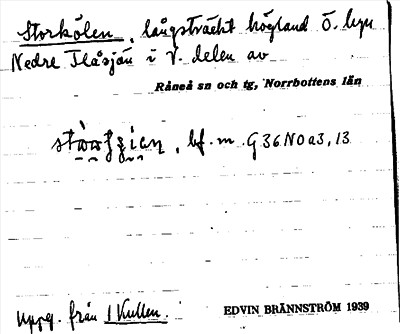 Storkölen, långsträckt högland Ö. om
Nedre Flåsjön i V. delen av
Råneå sn och tg, Norrbottens län
bf. m. G36NOa3, 13
Uppg. från 1 Kullen.
EDVIN BRÄNNSTRÖM 1939